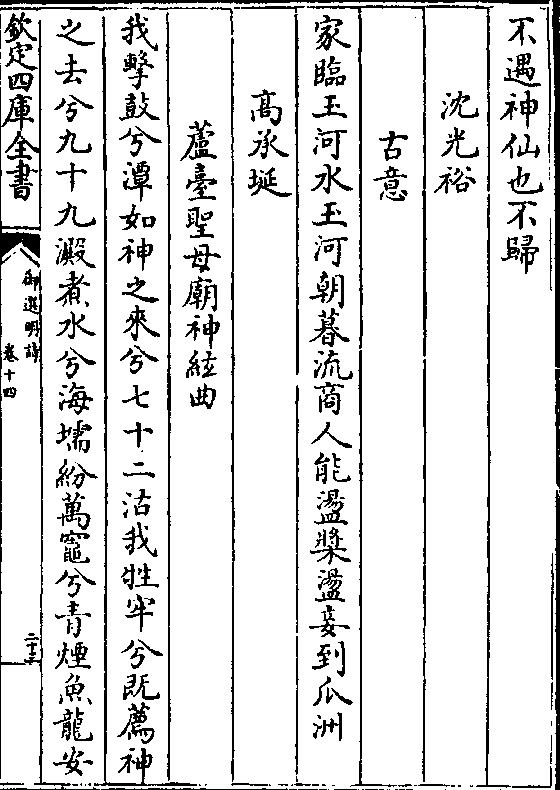 不遇神仙也不歸
沈光裕
古意
家臨玉河水玉河朝暮流商人能盪槳盪妾到瓜洲
高承埏
蘆臺聖母廟神絃曲
我擊鼓兮潭如神之來兮七十二沽我牲牢兮既薦神
之去兮九十九澱煮水兮海壖紛萬竈兮青煙魚龍安
欽定四庫全書
御選明詩
卷十四
二十三